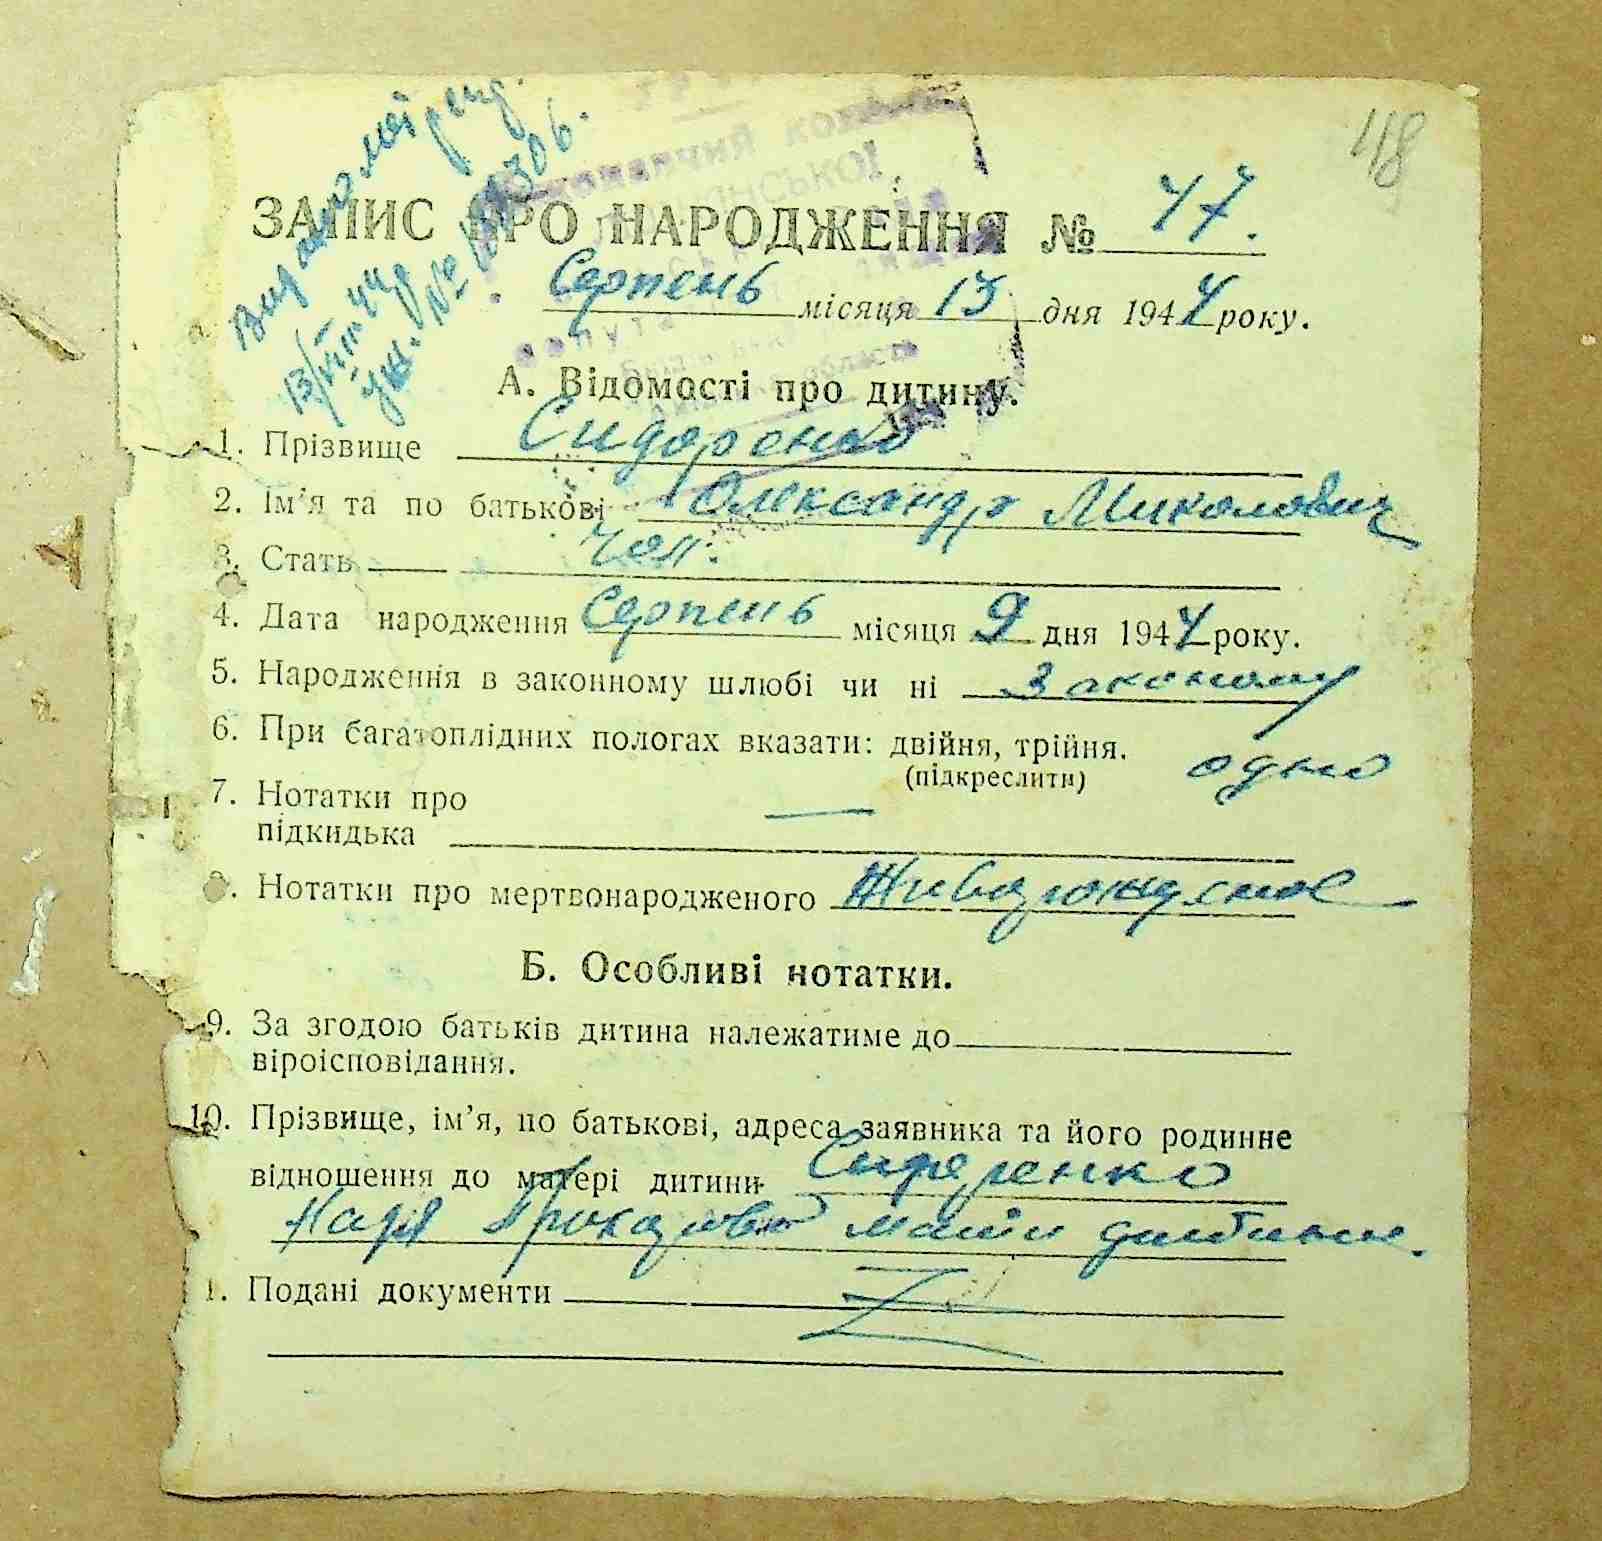 48
ЗАПИС ПРО НАРОДЖЕННЯ № 47.
Серпень місяця 13 дня 1944 року.
А. Відомості про дитину.
1. Прізвище Сидоренко
2. Ім'я та по батькові Олександр Миколович
3. Стать чол.
4. Дата народження Серпень місяця 9 дня 1944 року.
5. Народження в законному шлюбі чи ні Законому
6. При багатоплідних пологах вказати: двійня, трійня. одно
(підкреслити)
7. Нотатки про
підкидька —
. Нотатки про мертвонародженого Живорожденое
Б. Особливі нотатки.
9. За згодою батьків дитина належатиме до
віроісповідання.
10. Прізвище, ім'я, по батькові, адреса заявника та його родинне
відношення до матері дитини Сидоренко
мати дитини.
1. Подані документи Z